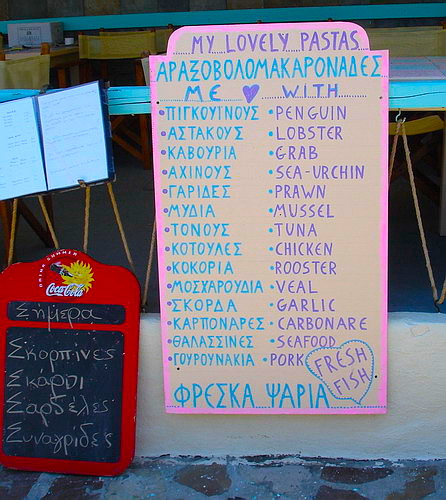 MY LOVELY PASTAS
ΑΡΑΖΟΒΟΛΟΜΑΚΑΡΟΝΑΔΕΣ
ΜΕ WITH
ΠΙΓΚΟΥΙΝΟΥΣ • PENGUIN
ΑΣΤΑΚΟΥΣ • LOBSTER
ΚΑΒΟΥΡΙΑ • GRAB
ΑΧΙΝΟΥΣ • SEA-URCHIN
ΓΑΡΙΔΕΣ • PRAWN
ΜΥΔΙΑ • MUSSEL
ΤΟΝΟΥΣ • TUNA
ΚΟΤΟΥΛΕΣ • CHICKEN
ΚΟΚΟΡΙΑ • ROOSTER
ΜΟΣΧΑΡΟΥΔΙΑ • VEAL
ΣΚΟΡΔΑ • GARLIC
ΚΑΡΠΟΝΑΡΕΣ • CARBONARE
ΘΑΛΑΣΣΙΝΕΣ • SEAFOOD
ΓΟΥΡΟΥΝΑΚΙΑ • PORK
FRESH
FISH
ΦΡΕΣΚΑ ΨΑΡΙΑ
DRINK SUMMER
Coca-Cola
Σήμερα
Σκορπινες
Σκάροι
Σαρδέλες
Συναγρίδες